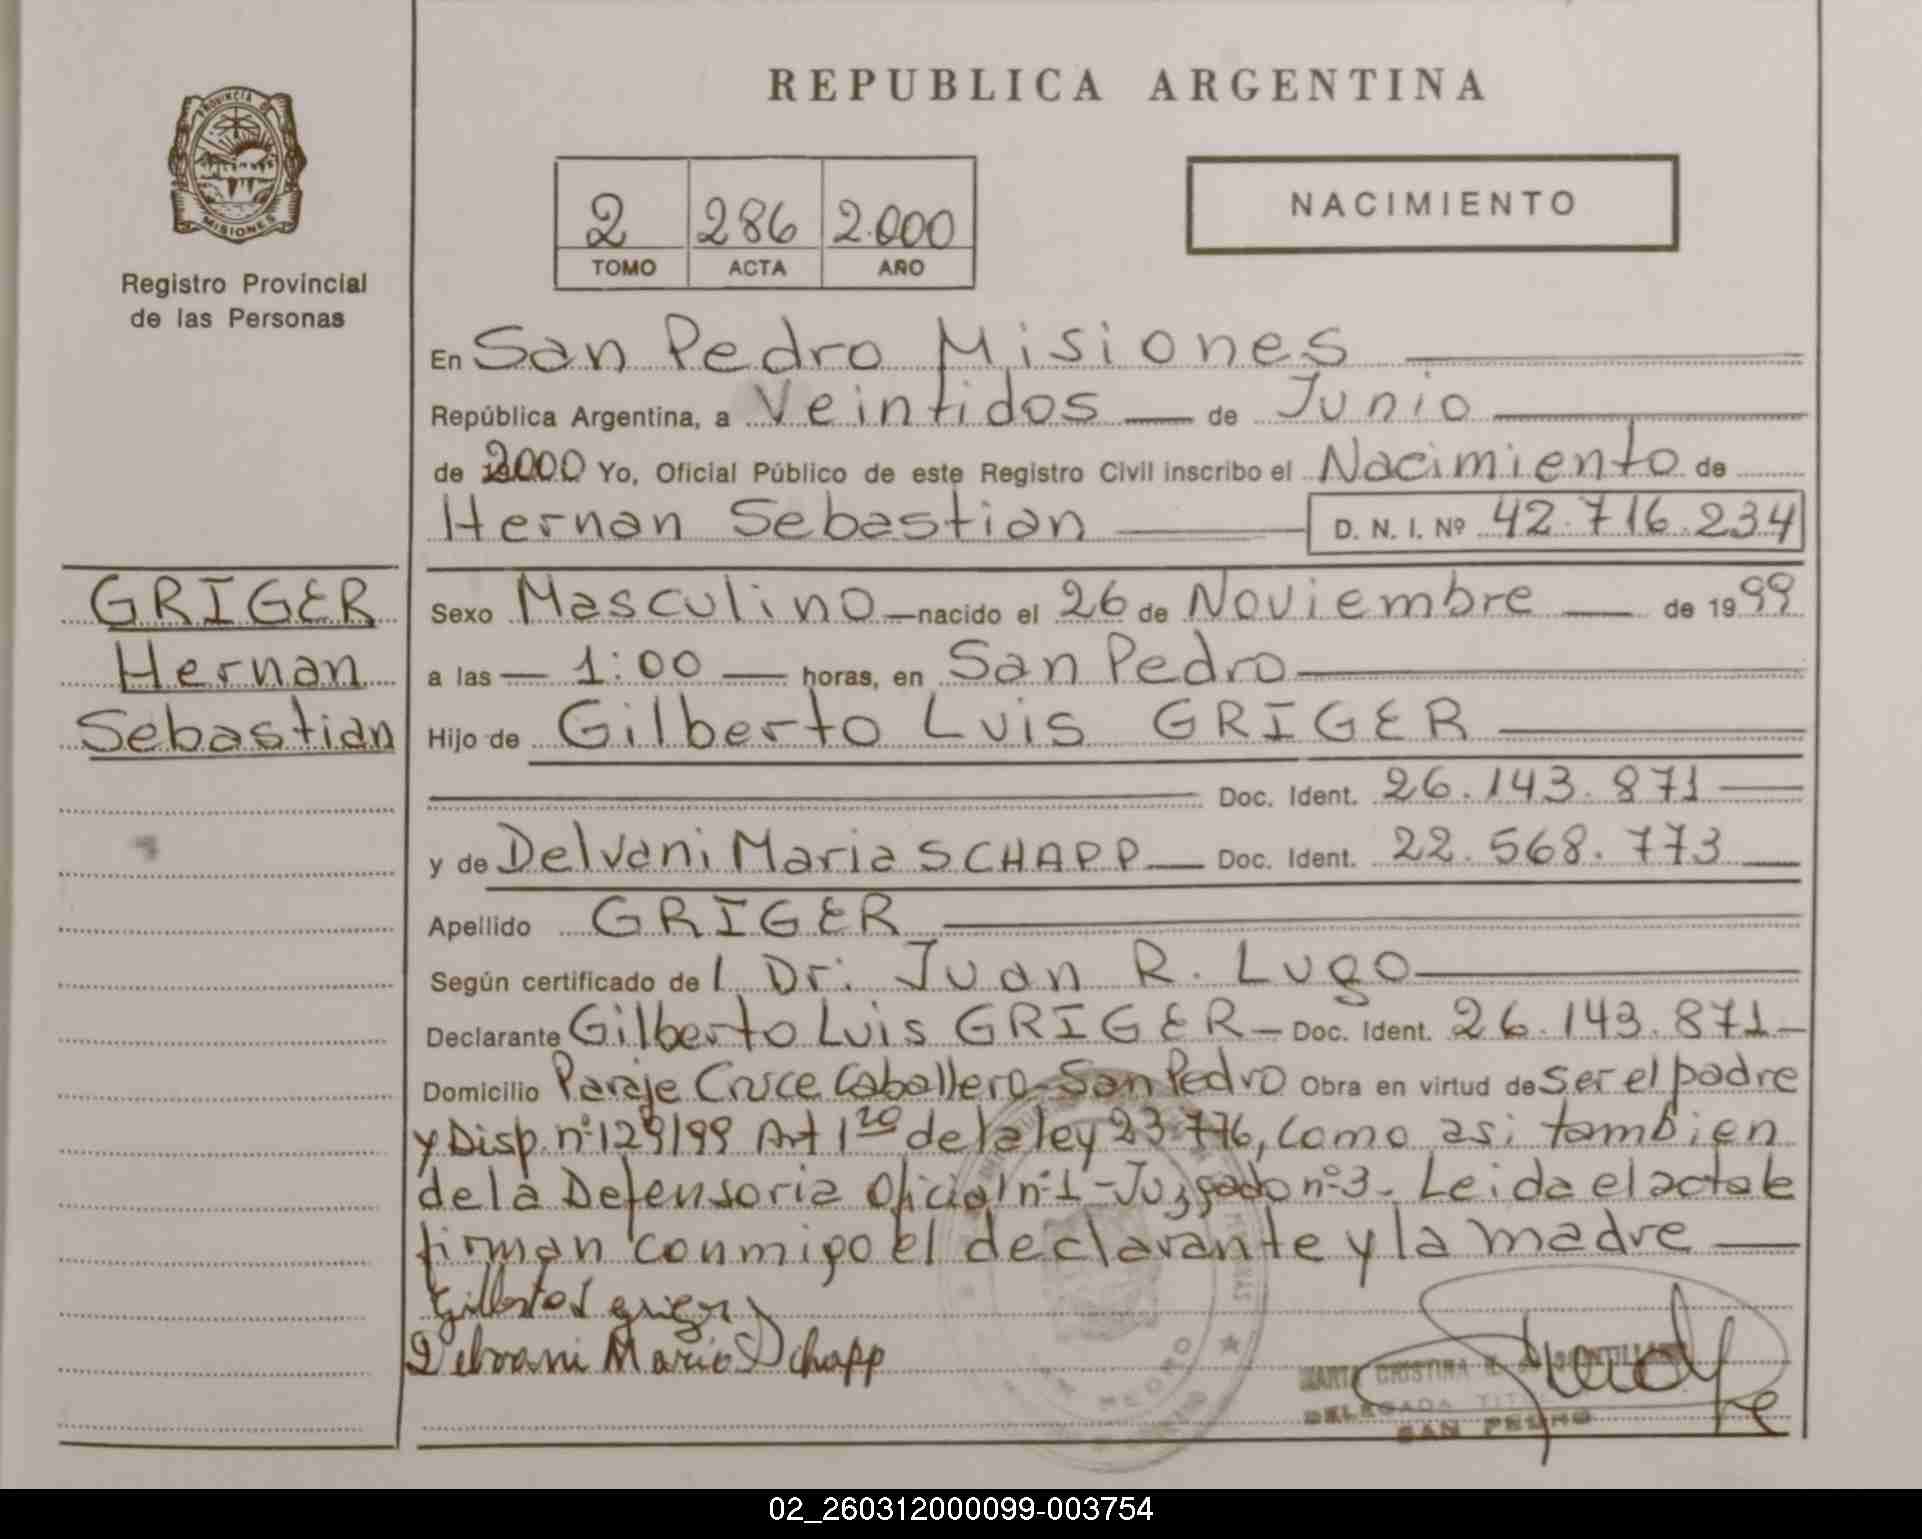 REPUBLICA ARGENTINA
PROVINCIA DE
MISIONES
Registro Provincial
de las Personas
2 286 2.000
TOMO ACTA AÑO
NACIMIENTO
En San Pedro Misiones
República Argentina, a Veintidos de Junio
de 2000 Yo, Oficial Público de este Registro Civil inscribo el Nacimiento de
Hernan Sebastian D. N. I. Nº 42.716.234
GRIGER
Hernan
Sebastian
Sexo Masculino nacido el 26 de Noviembre de 1999
a las 1:00 horas, en San Pedro
Hijo de Gilberto Luis GRIGER
Doc. Ident. 26.143.871
y de Delvani Maria SCHAPP Doc. Ident. 22.568.773
Apellido GRIGER
Según certificado de l Dr. Juan R. Lugo
Declarante Gilberto Luis GRIGER Doc. Ident. 26.143.871
Domicilio Paraje Cruce Caballero San Pedro Obra en virtud de ser el padre
y Disp. nº 129/99 Art 1ro de la ley 23.776, como asi tambien
de la Defensoria Oficial nº 1 - Juzgado nº 3. Leida el acta le
firman conmigo el declarante y la madre
Gilberto L griger
Delvani Maria Schapp
MARTA CRISTINA
DELEGADA TIT
SAN PEDRO
02_260312000099-003754